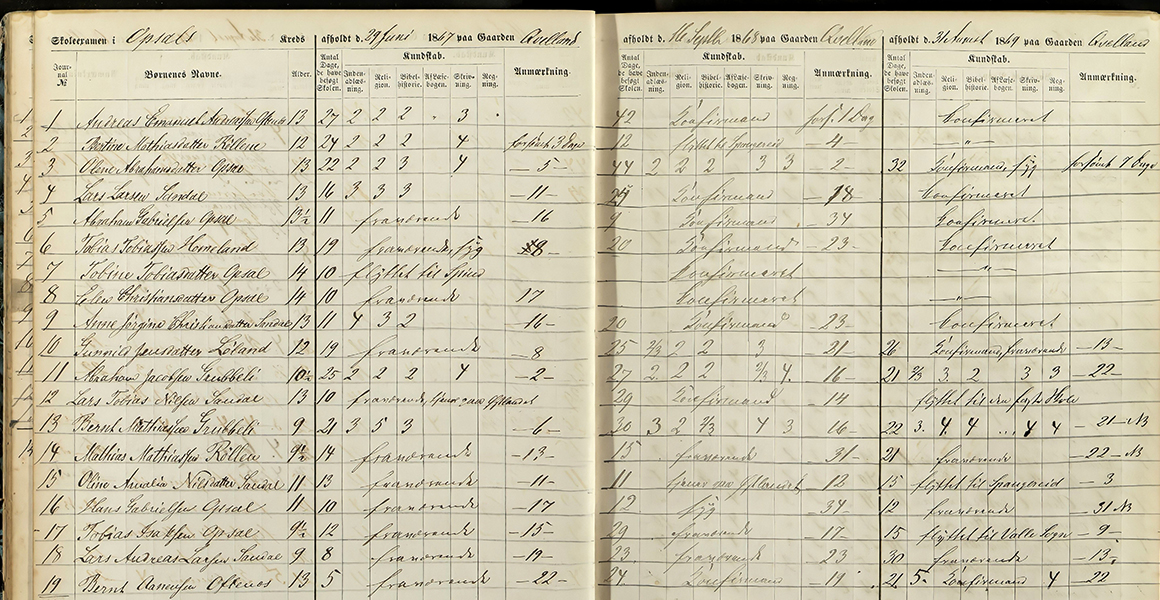 Skoleexamen i Opsals Kreds afholdt d. 29 Juni 1867 paa Gaarden Qvelland afholdt d. 16 Septb 1868 paa Gaarden Qvelland afholdt d. 31 August 1869 paa Gaarden Qvelland
Journal № Børnenes Navne. Alder. Antal Dage, de have besøgt Skolen. Kundskab. Indenadlæsning. Religion. Bibelhistorie. Aflæsebogen. Skrivning. Regning. Anmærkning. Antal Dage, de have besøgt Skolen. Kundskab. Indenadlæsning. Religion. Bibelhistorie. Aflæsebogen. Skrivning. Regning. Anmærkning. Antal Dage, de have besøgt Skolen. Kundskab. Indenadlæsning. Religion. Bibelhistorie. Aflæsebogen. Skrivning. Regning. Anmærkning.
1 Andreas Emanuel 13 27 2 2 2 3 42 Confirmand forst 1 Dag Confirmeret
2 Mathiasdatter Röllene 12 24 2 2 2 4 forsömt 3 Dage 12 flyttet til Spangereid — 4 — — " —
3 Olene Abrahamsdatter Opsal 13 22 2 2 3 4 — 5 — 44 2 2 2 3 3 — 2 — 32 Confirmand, syg forsömt 7 Dage
4 Lars Larsen Sandal 13 16 3 3 3 — 11 — Confirmand — 18 Confirmeret
5 Abraham Gabrielsen Opsal 13½ 11 fraværende — 16 9 Confirmand — 34 Confirmeret
6 Tobias Tobiassen Homeland 13 19 fraværende, syg 20 Confirmand — 23 — Confirmeret
7 Tobine Tobiasdatter Opsal 14 10 flyttet til Confirmeret — " —
8 Elen Christiansdatter Opsal 14 10 fraværende 17 Confirmeret — " —
9 Anne Jörgine Christiansdatter Sandal 13 11 4 3 2 — 16 — 20 Confirmand — 23 — Confirmeret
10 Gunnild Jensdatter Löland 12 19 fraværende — 8 25 2/3 2 2 3 — 21 — 26 Confirmand, fraværende — 13 —
11 Abraham Jacobsen Grubbeli 10½ 25 2 2 2 4 — 2 — 27 2 2 2 2/3 4. — 16 — 21 2/3 3. 2 3 3 — 22 —
12 Lars Tobias Nilsen Sandal 13 10 fraværende, tjener paa Östlandet 29 Confirmand — 14 flyttet til den faste Skole
13 Bernt Mathiassen Grubbeli 9 21 3 5 3 — 6 — 20 3 2 2/3 4 3 — 16 — 22 3. 4 4 ... 4 4 — 21 — NB
14 Mathias Mathiassen Röllen 9½ 14 fraværende — 13 — 15 fraværende — 31 — 21 fraværende — 22 — NB
15 Oline Amalia Nilsdatter Sandal 11 13 fraværende — 11 — 11 tjener paa Östlandet — 12 15 flyttet til Spangereid — 3
16 Hans Gabrielsen Opsal 11 10 fraværende — 17 12 syg — 34 — 12 fraværende — 31 NB
17 Tobias Isaksen Opsal 9½ 12 fraværende — 15 — 29 fraværende — 17 — 15 flyttet til Valle Sogn — 9 —
18 Lars Andreas Larsen Sandal 9 8 fraværende — 19 — 23 fraværende — 23 30 fraværende — 13.
19 Bernt Aanensen Oftenes 13 5 fraværende — 22 — 24 Confirmand — 19 21 5. Confirmand 4 — 22